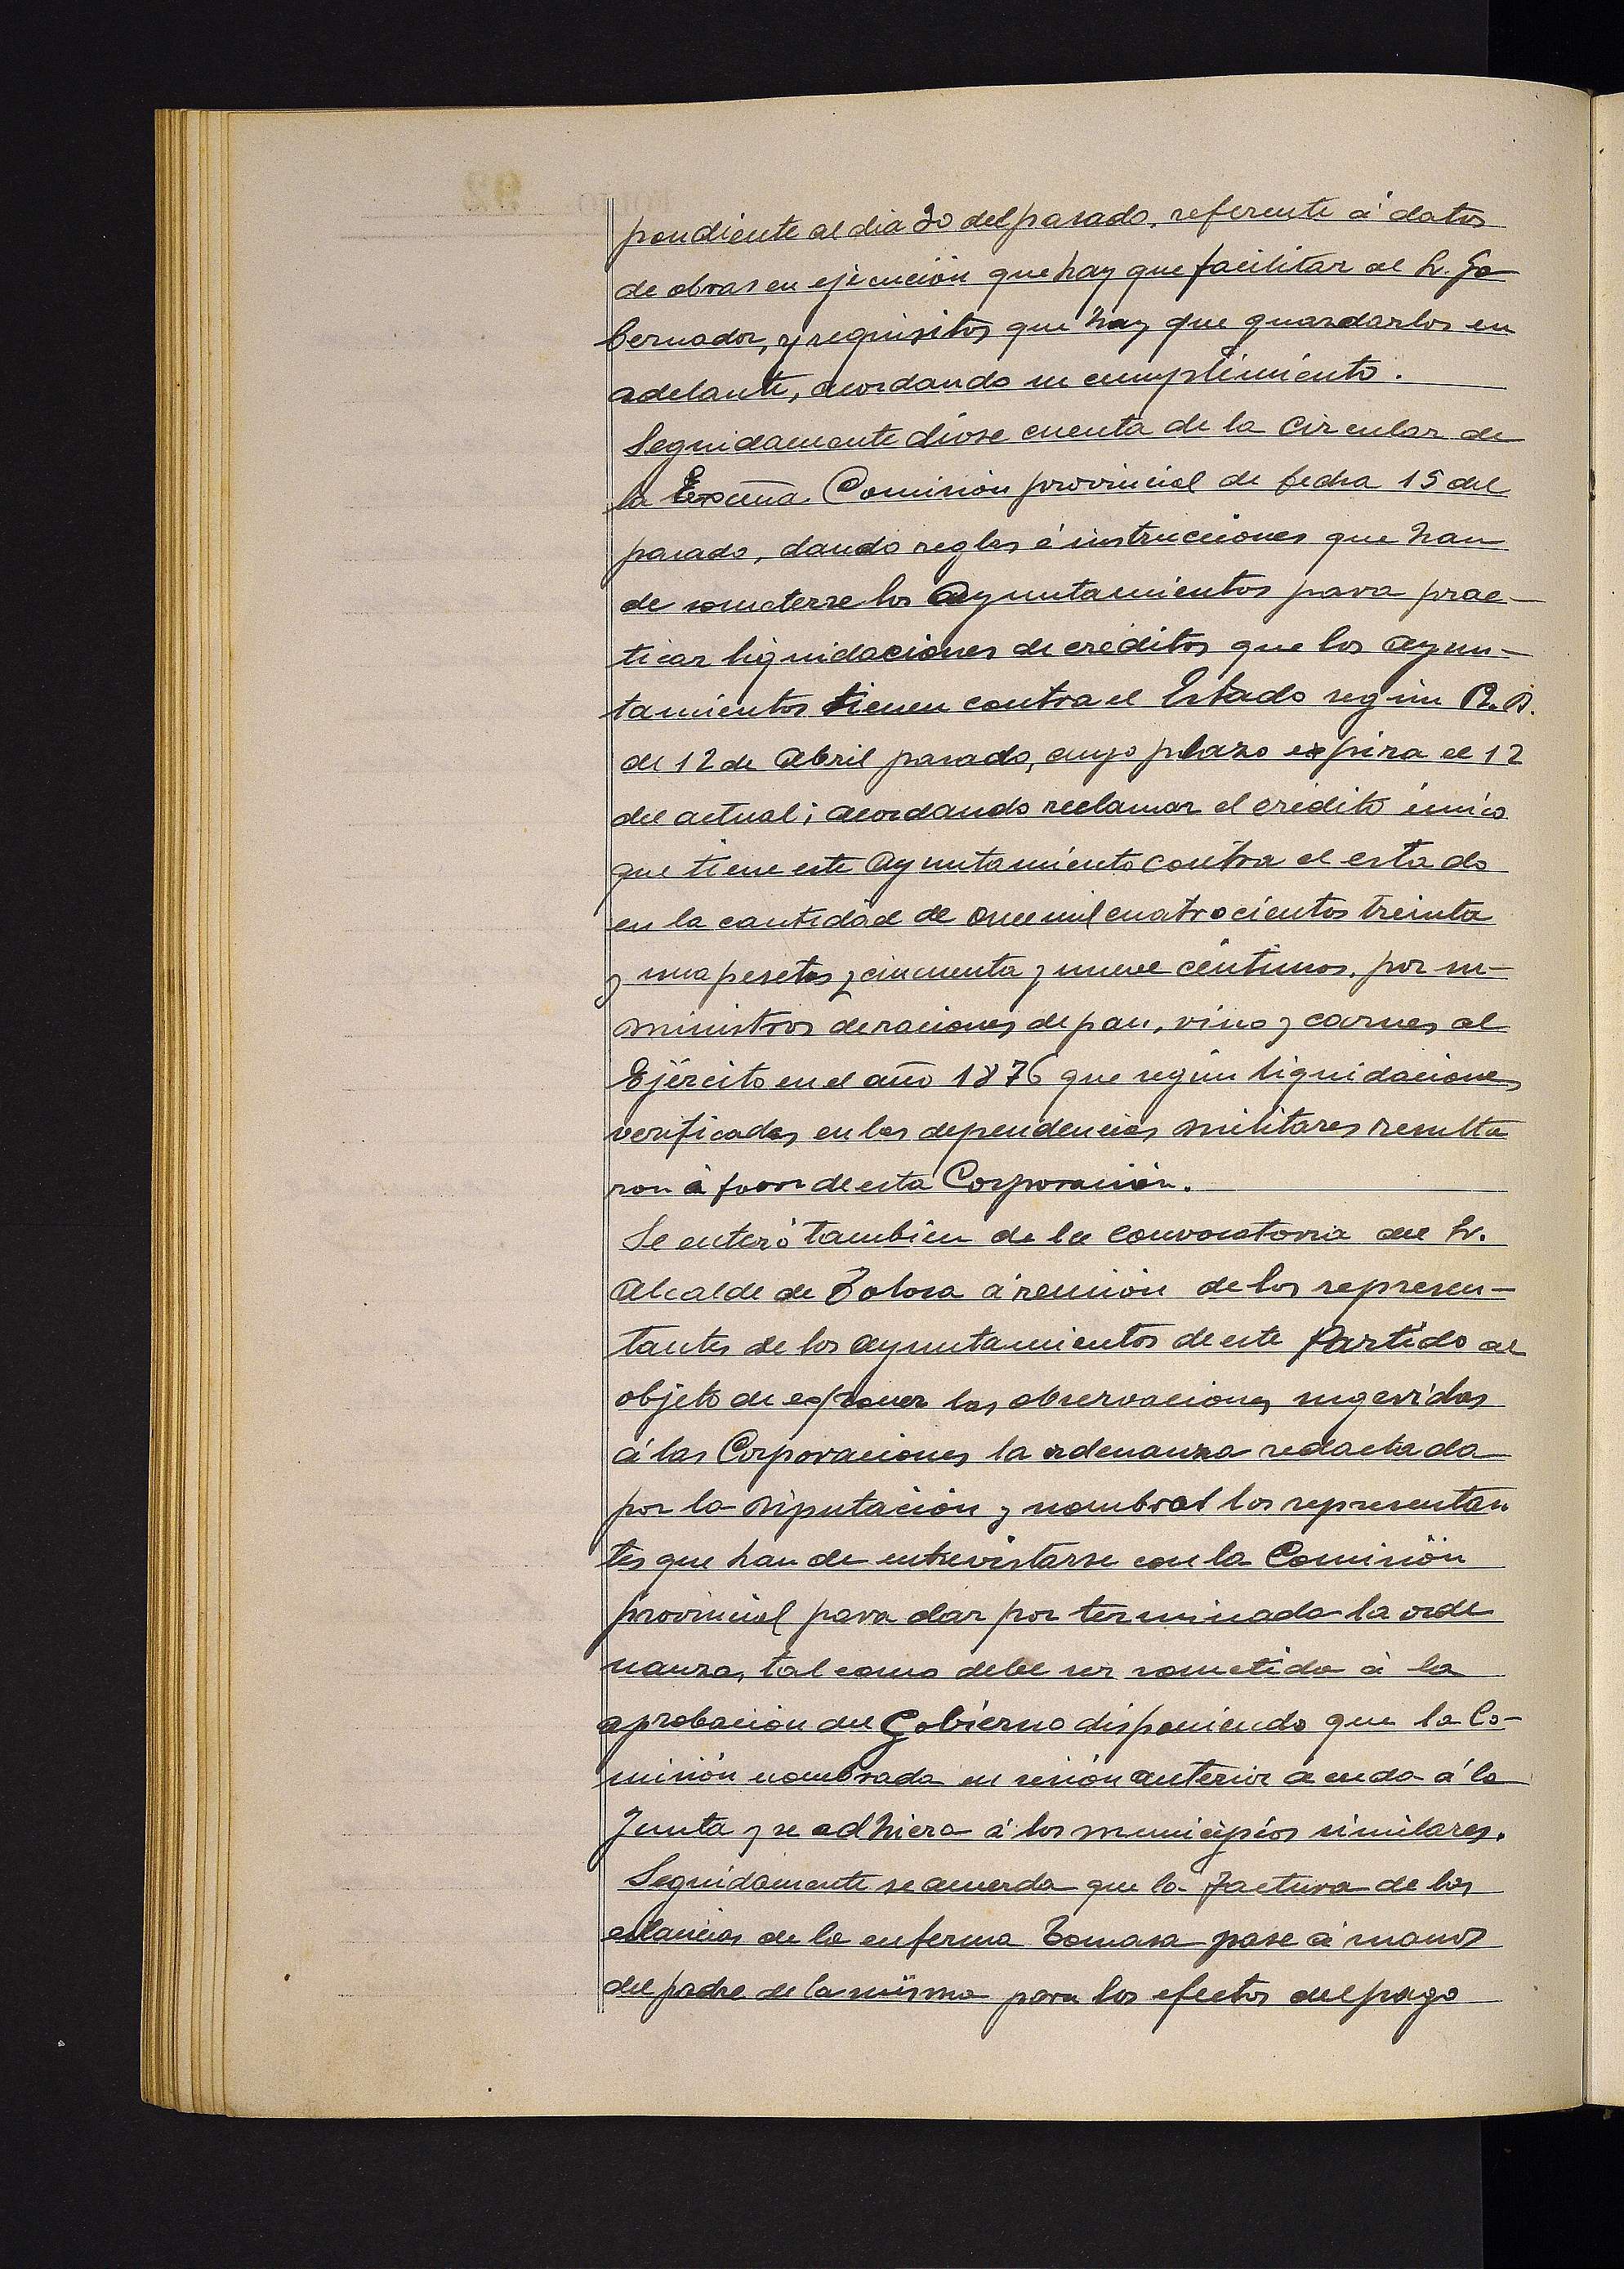 pondiente al dia 30 del pasado, referente á datos
de obras en ejecución que hay que facilitar al Sr. Go
bernador, y requisitos que hay que guardarlos en
adelante, acordando su cumplimiento.
Seguidamente dióse cuenta de la Circular de
la Excma Comisión provincial de fecha 15 del
pasado, dando reglas é instrucciones que han
de someterse los Ayuntamientos para prac-
ticar liquidaciones de créditos que los Ayun-
tamientos tienen contra el Estado según R. D.
de 12 de Abril pasado, cuyo plazo expira el 12
del actual; acordando reclamar el crédito único
que tiene este Ayuntamiento contra el estado
en la cantidad de once mil cuatrocientos treinta
y una pesetas y cincuenta y nueve céntimos, por su-
ministros de raciones de pan, vino y carnes al
Ejército en el año 1876 que según liquidaciones
verificadas en las dependencias militares resulta
ron á favor de esta Corporación.
Se enteró también de la convocatoria del Sr.
Alcalde de Tolosa á reunión de los represen-
tantes de los Ayuntamientos de este Partido al
objeto de exponer las observaciones sugeridas
á las Corporaciones la ordenanza redactada
por la Diputación y nombrar los representan
tes que han de entrevistarse con la Comisión
provincial para dar por terminada la orde
nanza, tal como debe ser sometida á la
aprobación del Gobierno disponiendo que la Co-
misión nombrada en sesión anterior acuda á la
Junta y se adhiera á los municipios similares.
Seguidamente se acuerda que la factura de las
estancias de la enferma Tomasa pase á manos
del padre de la misma para los efectos del pago
FOLIO 92